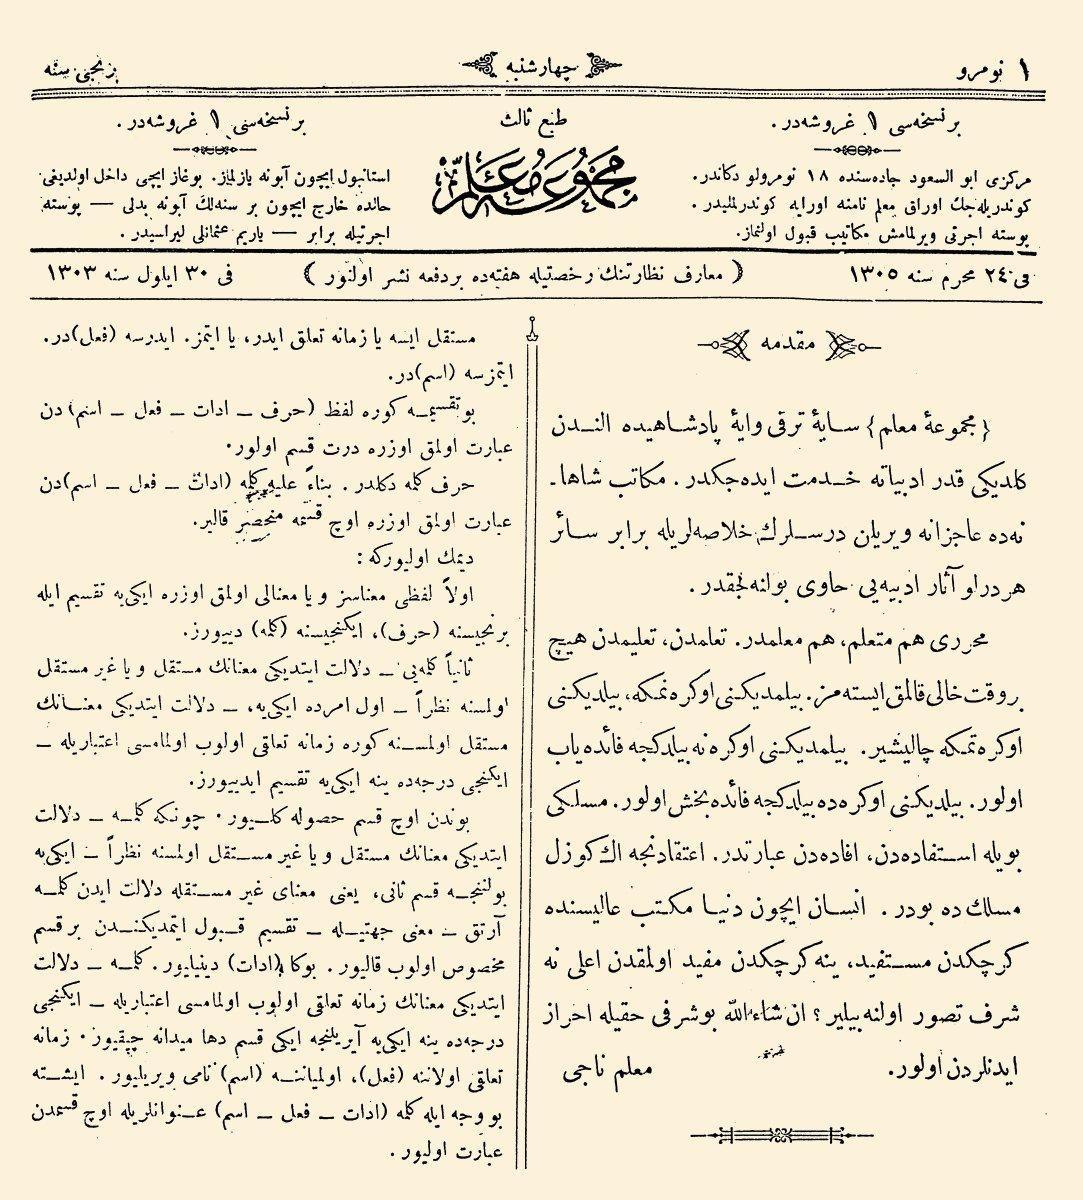 ١ نومرو
چهارشنبه
برنجى سنه
بر نسخه‌سى ١ غروشه‌در.
مركزى ابو السعود جاده‌سنده ١٨ نومرولو دكاندر.
كوندريله‌جك اوراق معلم نامنه اورايه كوندرلمليدر.
پوسته اجرتى ويرلمامش مكاتيب قبول اولنماز.
طبع ثالث
مجموعۀ معلم
بر نسخه‌سى ١ غروشه‌در.
استانبول ايچون آبونه يازلماز. بوغاز ايچى داخل اولديغى
حالده خارج ايچون بر سنه‌لك آبونه بدلى — پوسته
اجرتيله برابر — ياريم عثمانلى ليراسيدر.
فى ٢٤ محرم سنه ١٣٠٥
( معارف نظارتنك رخصتيله هفته‌ده بر دفعه نشر اولنور )
فى ٣٠ ايلول سنه ١٣٠٣
مقدمه
{مجموعۀ معلم} سايۀ ترقى وايۀ پادشاهيده الندن
كلديكى قدر ادبياته خدمت ايده‌جكدر. مكاتب شاها-
نه‌ده عاجزانه ويريلن درسلرك خلاصه‌لريله برابر سائر
هر درلو آثار ادبيه‌يى حاوى بولنه‌جقدر.
محررى هم متعلم، هم معلمدر. تعلمدن، تعليمدن هيچ
بر وقت خالى قالمق ايسته‌مز. بيلمديكنى اوكره‌نمكه، بيلديكنى
اوكره‌تمكه چاليشير. بيلمديكنى اوكره‌نه بيلدكجه فائده‌ياب
اولور. بيلديكنى اوكره‌ده بيلدكجه فائده‌بخش اولور. مسلكى
بويله استفاده‌دن، افاده‌دن عبارتدر. اعتقادنجه اك كوزل
مسلك ده بودر. انسان ايچون دنيا مكتب عاليسنده
كرچكدن مستفيد، ينه كرچكدن مفيد اولمقدن اعلى نه
شرف تصور اولنه‌بيلير؟ ان شاءالله بو شرفى حقيله احراز
ايدنلردن اولور.
معلم ناجى
مستقل ايسه يا زمانه تعلق ايدر، يا ايتمز. ايدرسه (فعل)در.
ايتمزسه (اسم)در.
بو تقسيمه كوره لفظ (حرف – ادات – فعل – اسم) دن
عبارت اولمق اوزره درت قسم اولور.
حرف كلمه دكلدر. بناءً عليه كلمه (ادات – فعل – اسم)دن
عبارت اولمق اوزره اوچ قسمه منحصر قالير.
ديمك اوليوركه:
اولاً لفظى معناسز ويا معنالى اولمق اوزره ايكى‌يه تقسيم ايله
برنجيسنه (حرف)، ايكنجيسنه (كلمه) دييورز.
ثانياً كلمه‌يى – دلالت ايتديكى معنانك مستقل ويا غير مستقل
اولمسنه نظراً – اول امرده ايكى‌يه، – دلالت ايتديكى معنانك
مستقل اولمسنه كوره زمانه تعلقى اولوب اولمامسى اعتباريله –
ايكنجى درجه‌ده ينه ايكى‌يه تقسيم ايدييورز.
بوندن اوچ قسم حصوله كليور. چونكه كلمه – دلالت
ايتديكى معنانك مستقل ويا غير مستقل اولمسنه نظراً – ايكى‌يه
بولنجه قسم ثانى، يعنى معناى غير مستقله دلالت ايدن كلمه
آرتق – معنى جهتيله – تقسيم قبول ايتمديكندن بر قسم
مخصوص اولوب قاليور. بوكا (ادات) دينيليور. كلمه – دلالت
ايتديكى معنانك زمانه تعلقى اولوب اولمامسى اعتباريله – ايكنجى
درجه‌ده ينه ايكى‌يه آيريلنجه ايكى قسم دها ميدانه چيقيور. زمانه
تعلقى اولاننه (فعل)، اولمياننه (اسم) نامى ويريليور. ايشته
بو وجه ايله كلمه (ادات – فعل – اسم) عنوانلريله اوچ قسمدن
عبارت اوليور.